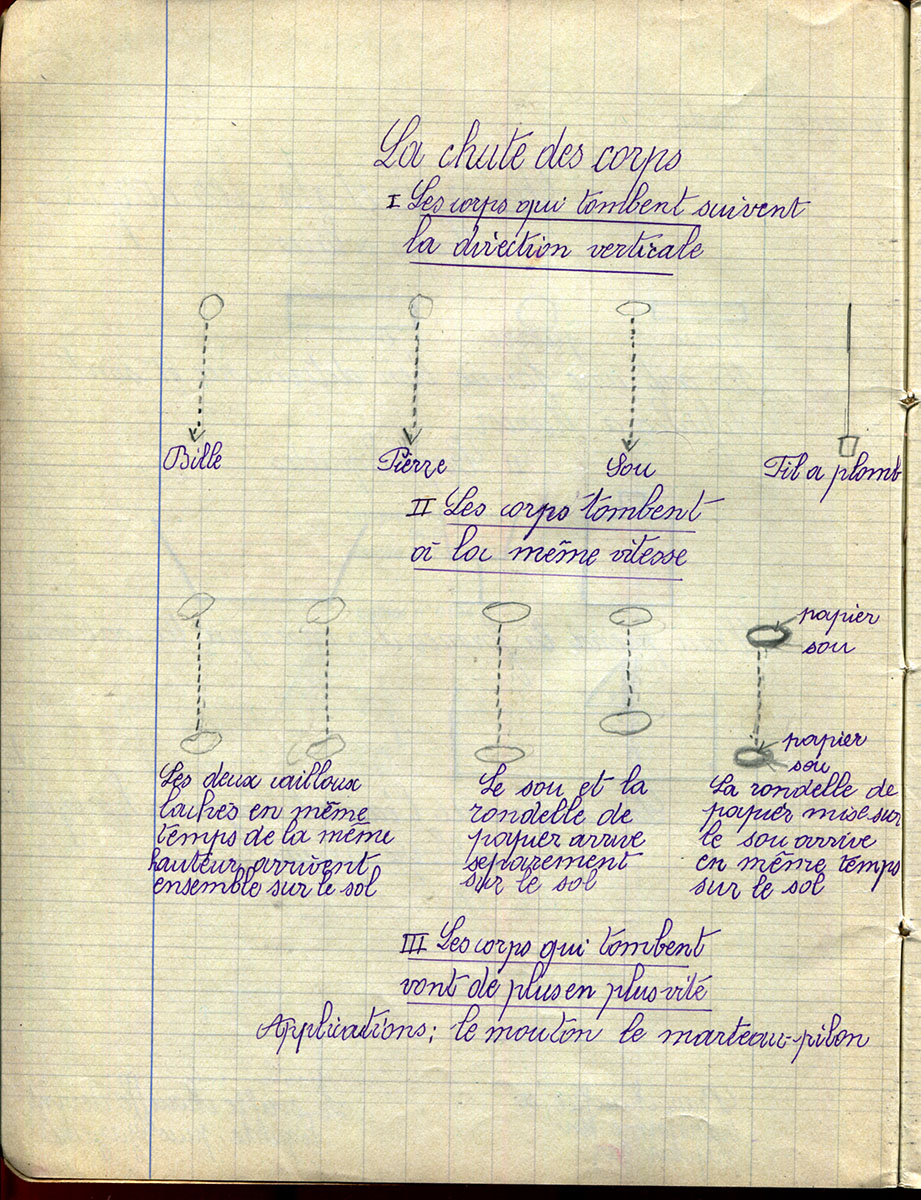 La chute des corps
I Les corps qui tombent suivent
la direction verticale
Bille Pierre Sou Fil a plomb
II Les corps tombent
à la même vitesse
papier
sou
papier
sou
Les deux cailloux
lachés en même
temps de la même
hauteur arrivent
ensemble sur le sol
Le sou et la
rondelle de
papier arrive
separement
sur le sol
La rondelle de
papier mise sur
le sou arrive
en même temps
sur le sol
III Les corps qui tombent
vont de plus en plus vité
Applications: le mouton le marteau-pilon